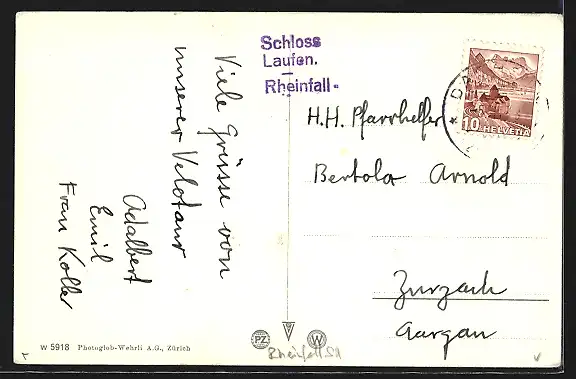 Schloss
Laufen.
Rheinfall.
Viele Grüsse von
unserer Velotour
Adalbert
Emil
Frau Koller
H.H. Pfarrhelfer
Bertola Arnold
Zurzach
Aargau
10 HELVETIA
W 5918 Photoglob-Wehrli A.G., Zürich
PZ
W
Rheinfall SH